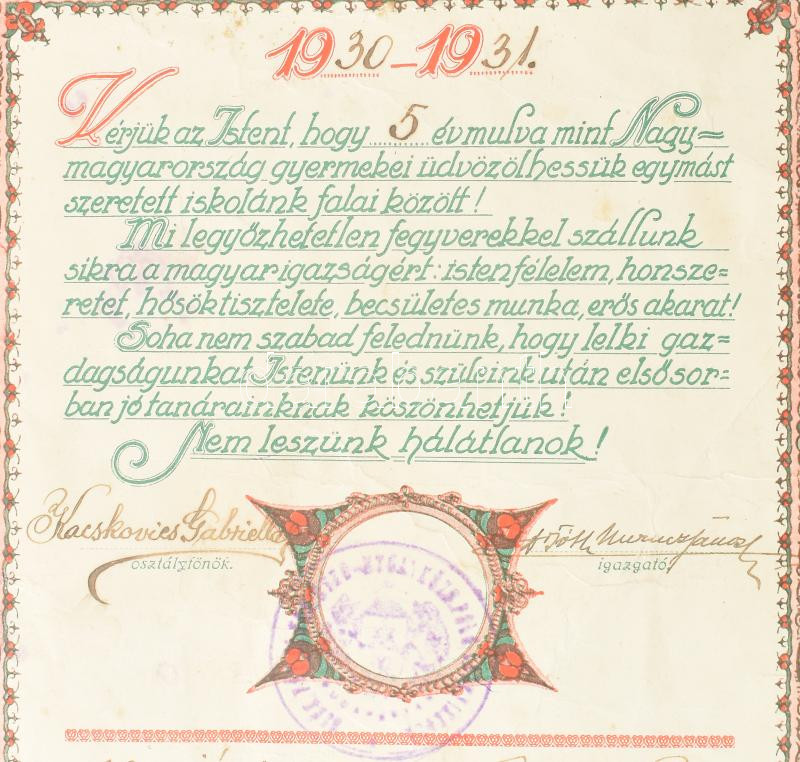 1930-1931.
Kérjük az Istent, hogy 5 év mulva mint Nagy=
magyarország gyermekei üdvözölhessük egymást
szeretett iskolánk falai között!
Mi legyőzhetetlen fegyverekkel szállunk
sikra a magyar igazságért: istenfélelem, honsze=
retet, hősök tisztelete, becsületes munka, erős akarat!
Soha nem szabad felednünk, hogy lelki gaz=
dagságunkat Istenünk és szüleink után elsősor=
ban jó tanárainknak köszönhetjük!
Nem leszünk hálátlanok!
Kacskovics Gabriella
osztályfőnök.
igazgató.